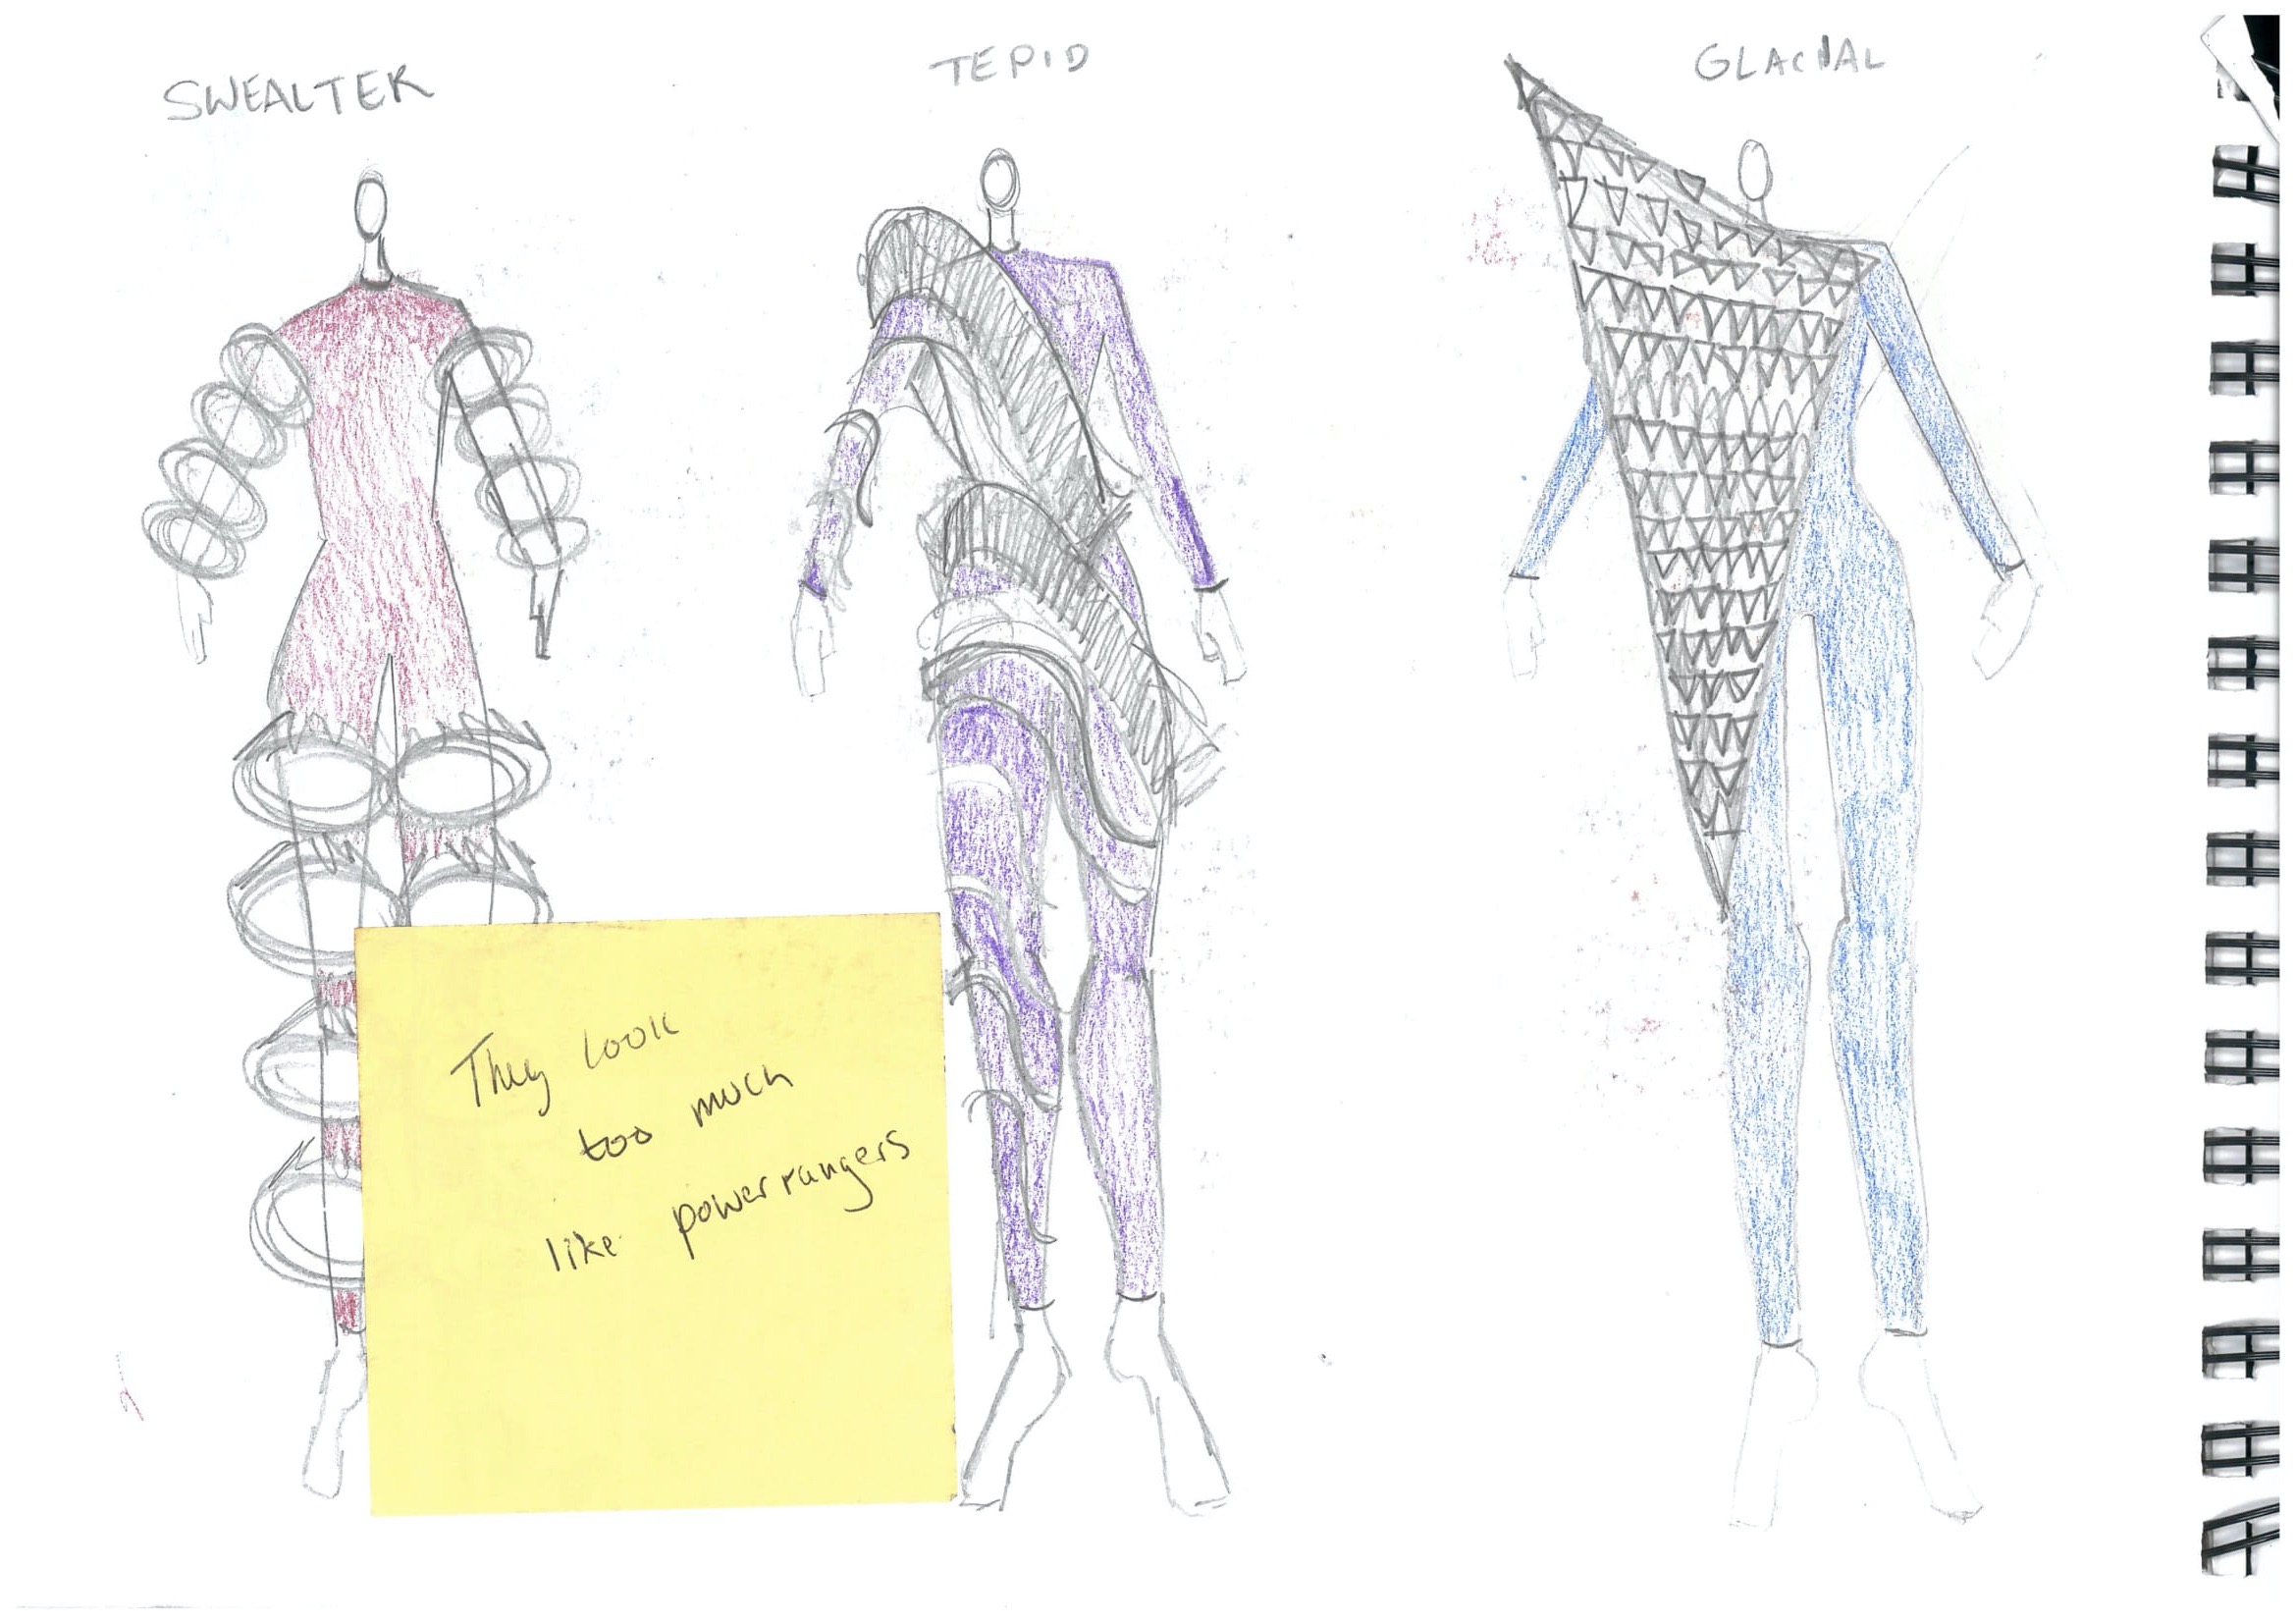 SWEALTER
TEPID
GLACIAL
They look
too much
like powerrangers